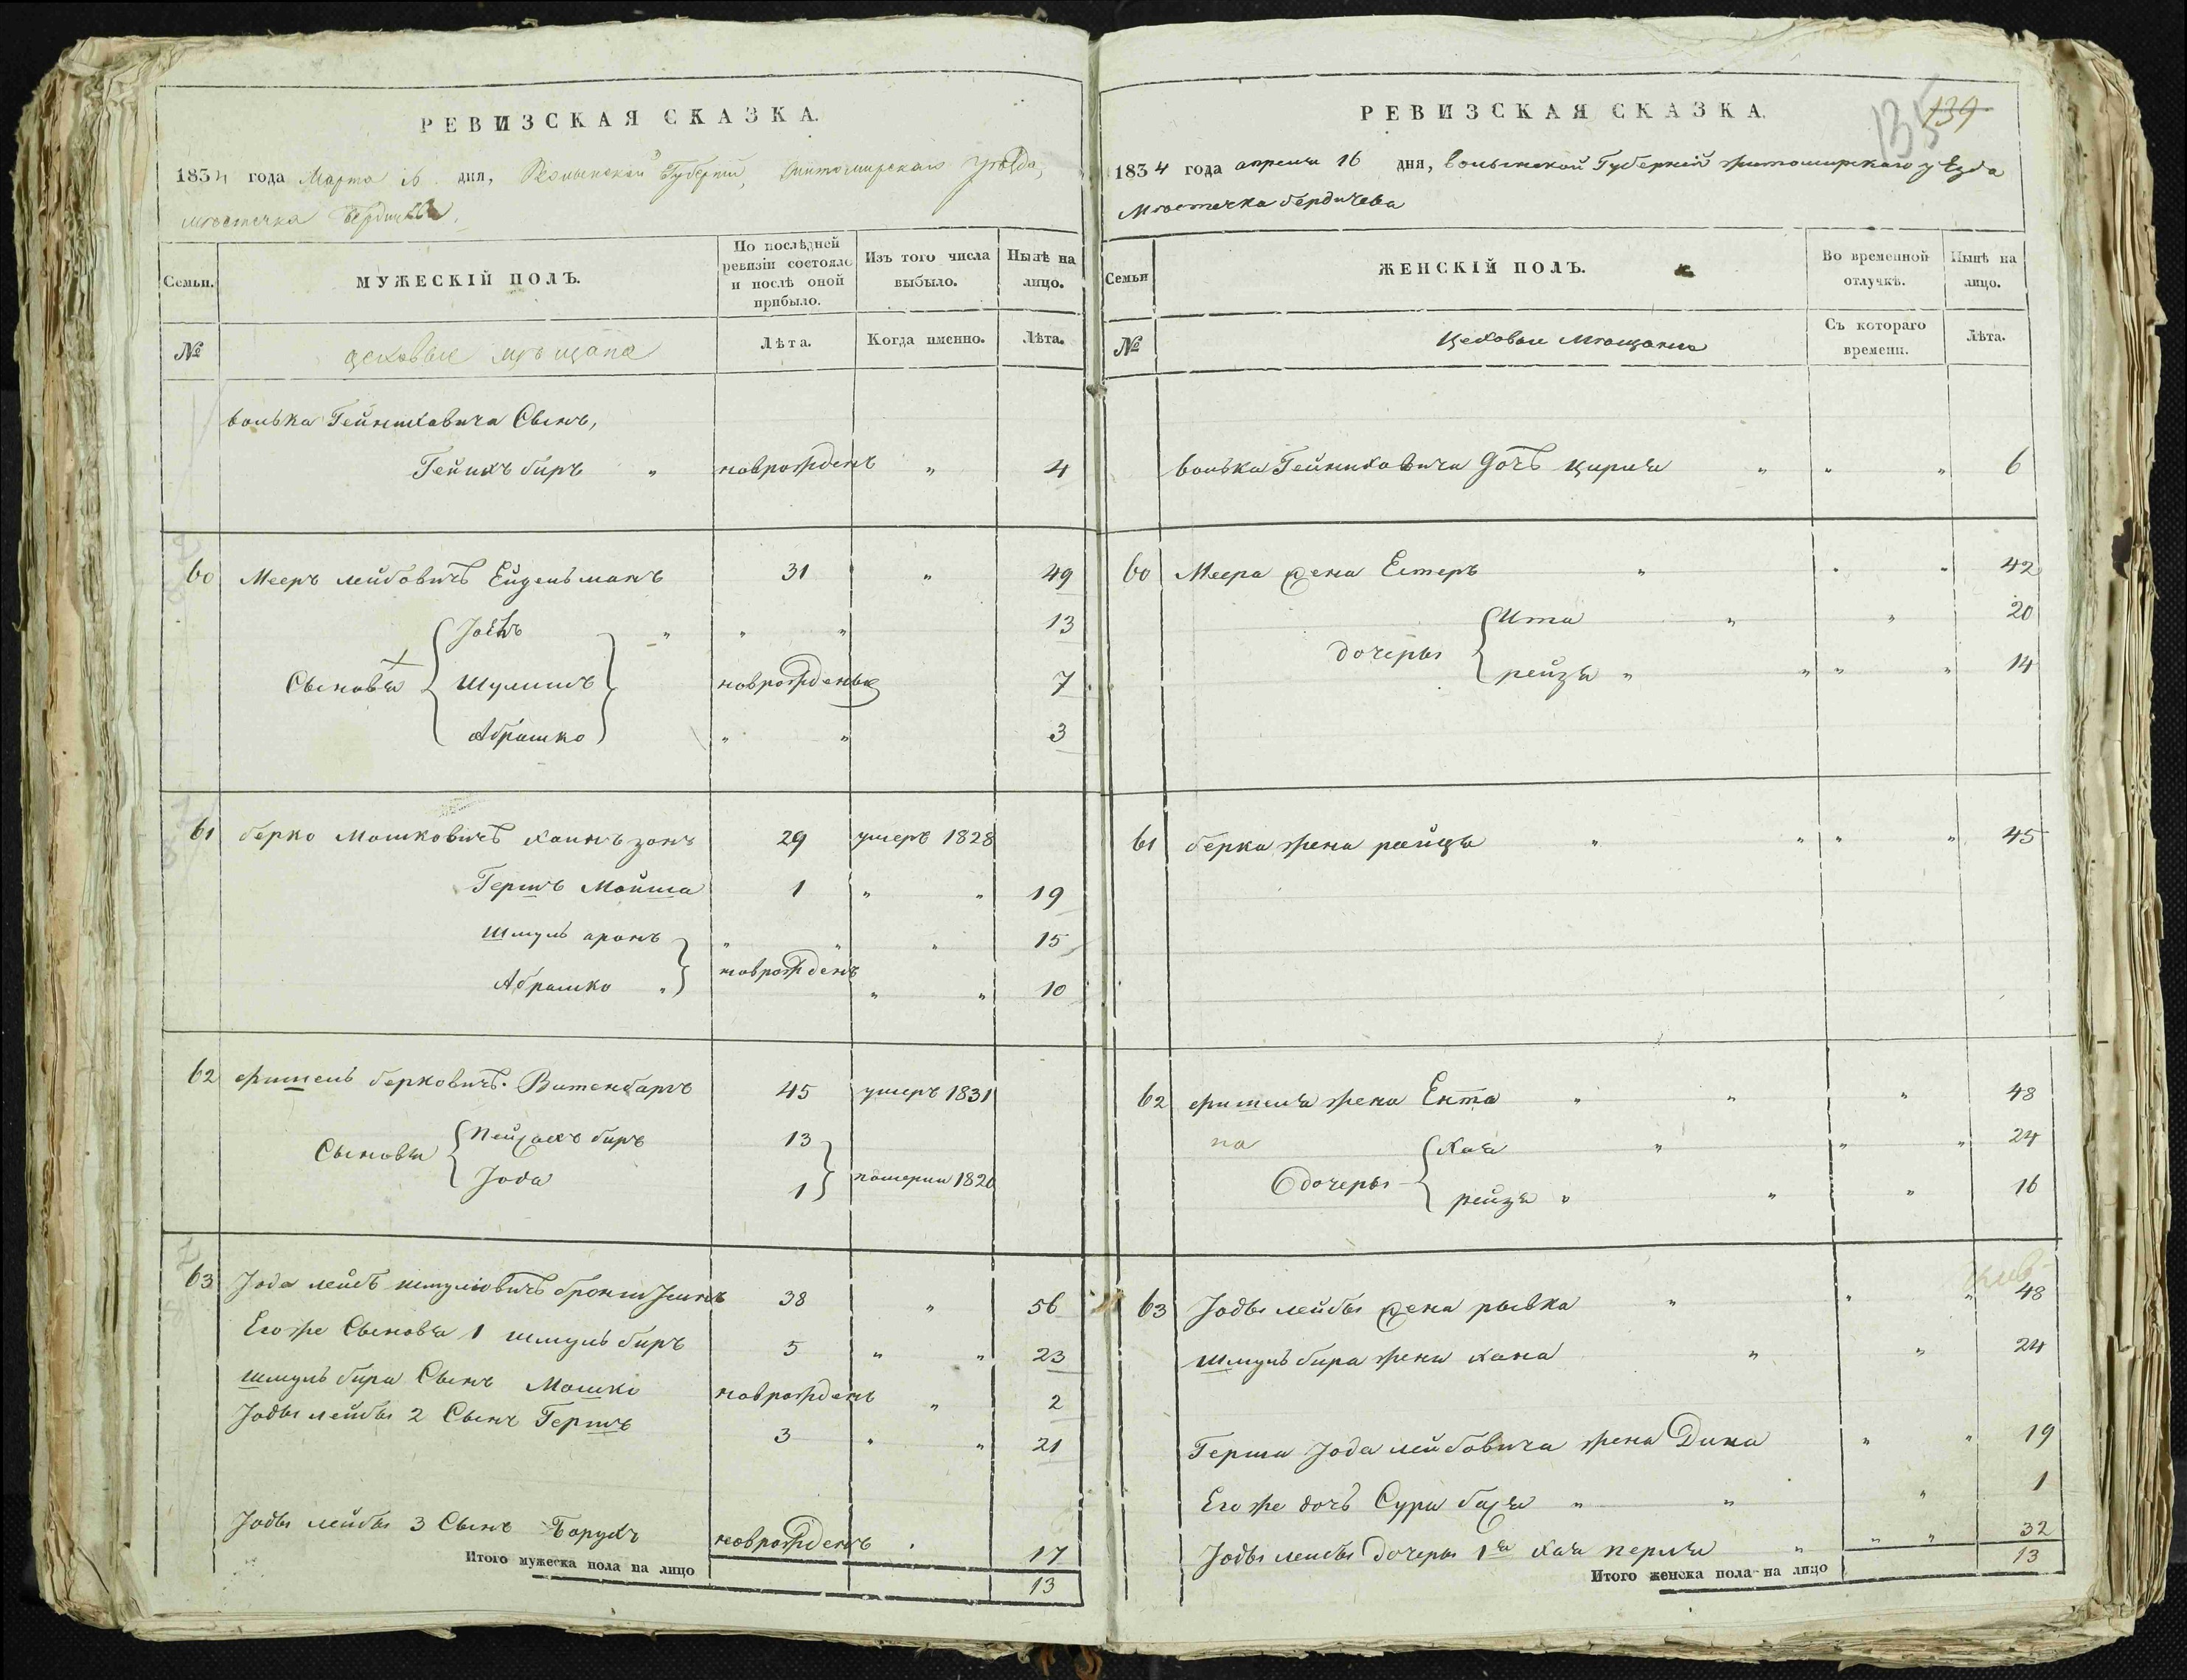 РЕВИЗСКАЯ СКАЗКА.
1834 года Марта 16 дня, Волынской Губерніи, Житомирскаго уѣзда,
мѣстечка Бердичева
Семьи.
МУЖЕСКІЙ ПОЛЪ.
По послѣдней ревизіи состояло и послѣ оной прибыло.
Изъ того числа выбыло.
Нынѣ на лицо.
№
цеховые мѣщане
Лѣта.
Когда именно.
Лѣта.
волька Гейниховича Сынъ,
Гейнихъ биръ " новрожденъ " 4
60 Мееръ лейбовичъ Ейдельманъ 31 " 49
Іосъ " " " 13
Сыновья Шулимъ новрожденые 7
Абрамко " " 3
61 берко Мошковичъ хаимъзонъ 29 умеръ 1828
Гершъ Мойша 1 " " 19
Шмуль аронъ " " " 15
новрожденъ
Абрамко " " " 10
62 фишель берковичъ Витенбаргъ 45 умеръ 1831
Сыновья Пейсахъ биръ 13
Іода 1 померли 1820
63 Іода лейбъ шмулювичъ бронштейнъ 38 " 56
Егоже Сыновья 1 шмуль биръ 5 " " 23
шмуль бира Сынъ Мошко новрожденъ " 2
Іоды лейбы 2 Сынъ Гершъ 3 " " 21
Іоды лейбы 3 Сынъ Борухъ новрожденъ " 17
Итого мужеска пола на лицо 13
РЕВИЗСКАЯ СКАЗКА.
139
135
1834 года апреля 16 дня, волынской Губерніи житомирскаго уѣзда
Мѣстечка бердичева
Семьи
ЖЕНСКІЙ ПОЛЪ.
Во временной отлучкѣ.
Нынѣ на лицо.
№
Цеховые мѣщане
Съ котораго времени.
Лѣта.
волька Гейниховича дочъ цирля " " " 6
60 Меера жена Естеръ " " " 42
Ита " " 20
дочеры рейзя " " " " 14
61 берка жена рейзя " " " " 45
62 фишеля жена Ента " " " 48
на
Хая " " " 24
дочеры рейзя " " " 16
63 Іоды лейбы жена рывка " " " 48
шмуль бира жена хана " " 24
Герша Іода лейбовича жена Дина " " 19
Егоже дочъ Сура бася " " " 1
Іоды лейбы дочеры 1я хая перля " " " 32
Итого женска пола на лицо 13